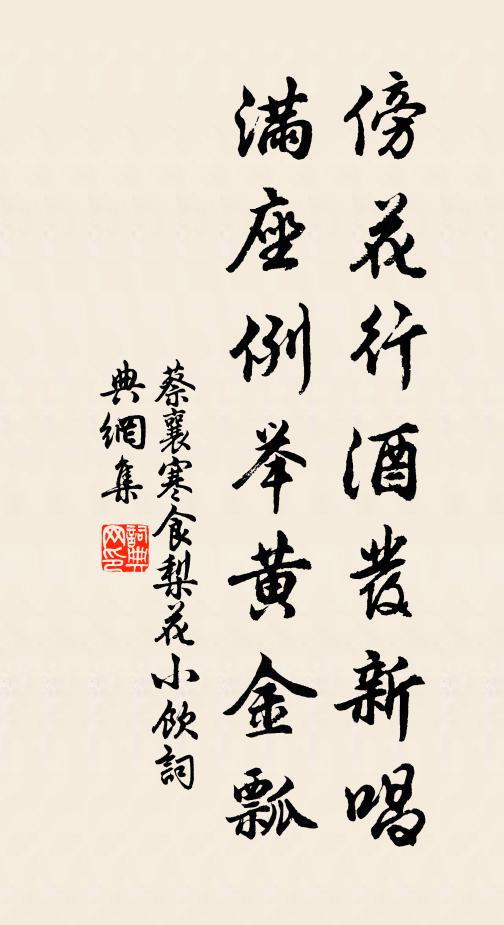 傍花行酒發新唱
滿座例举黄金瓢
蔡襄寒食梨花小飲詞
典網集
詞典
网印